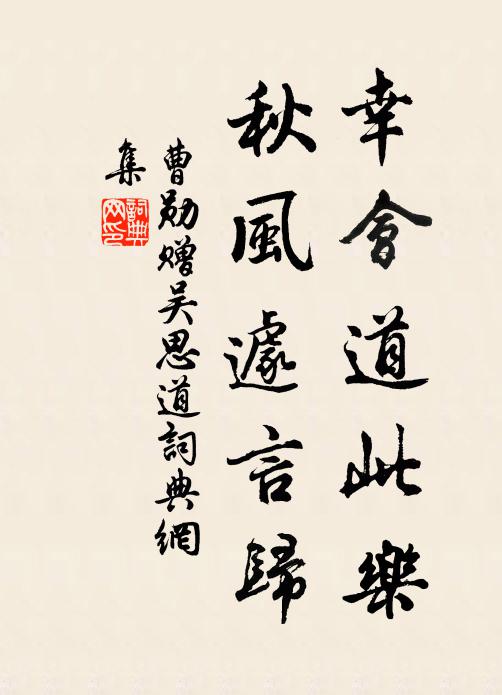 幸會道此樂
秋風遽言歸
曹勛贈吴思道詞典網
集
詞典網印